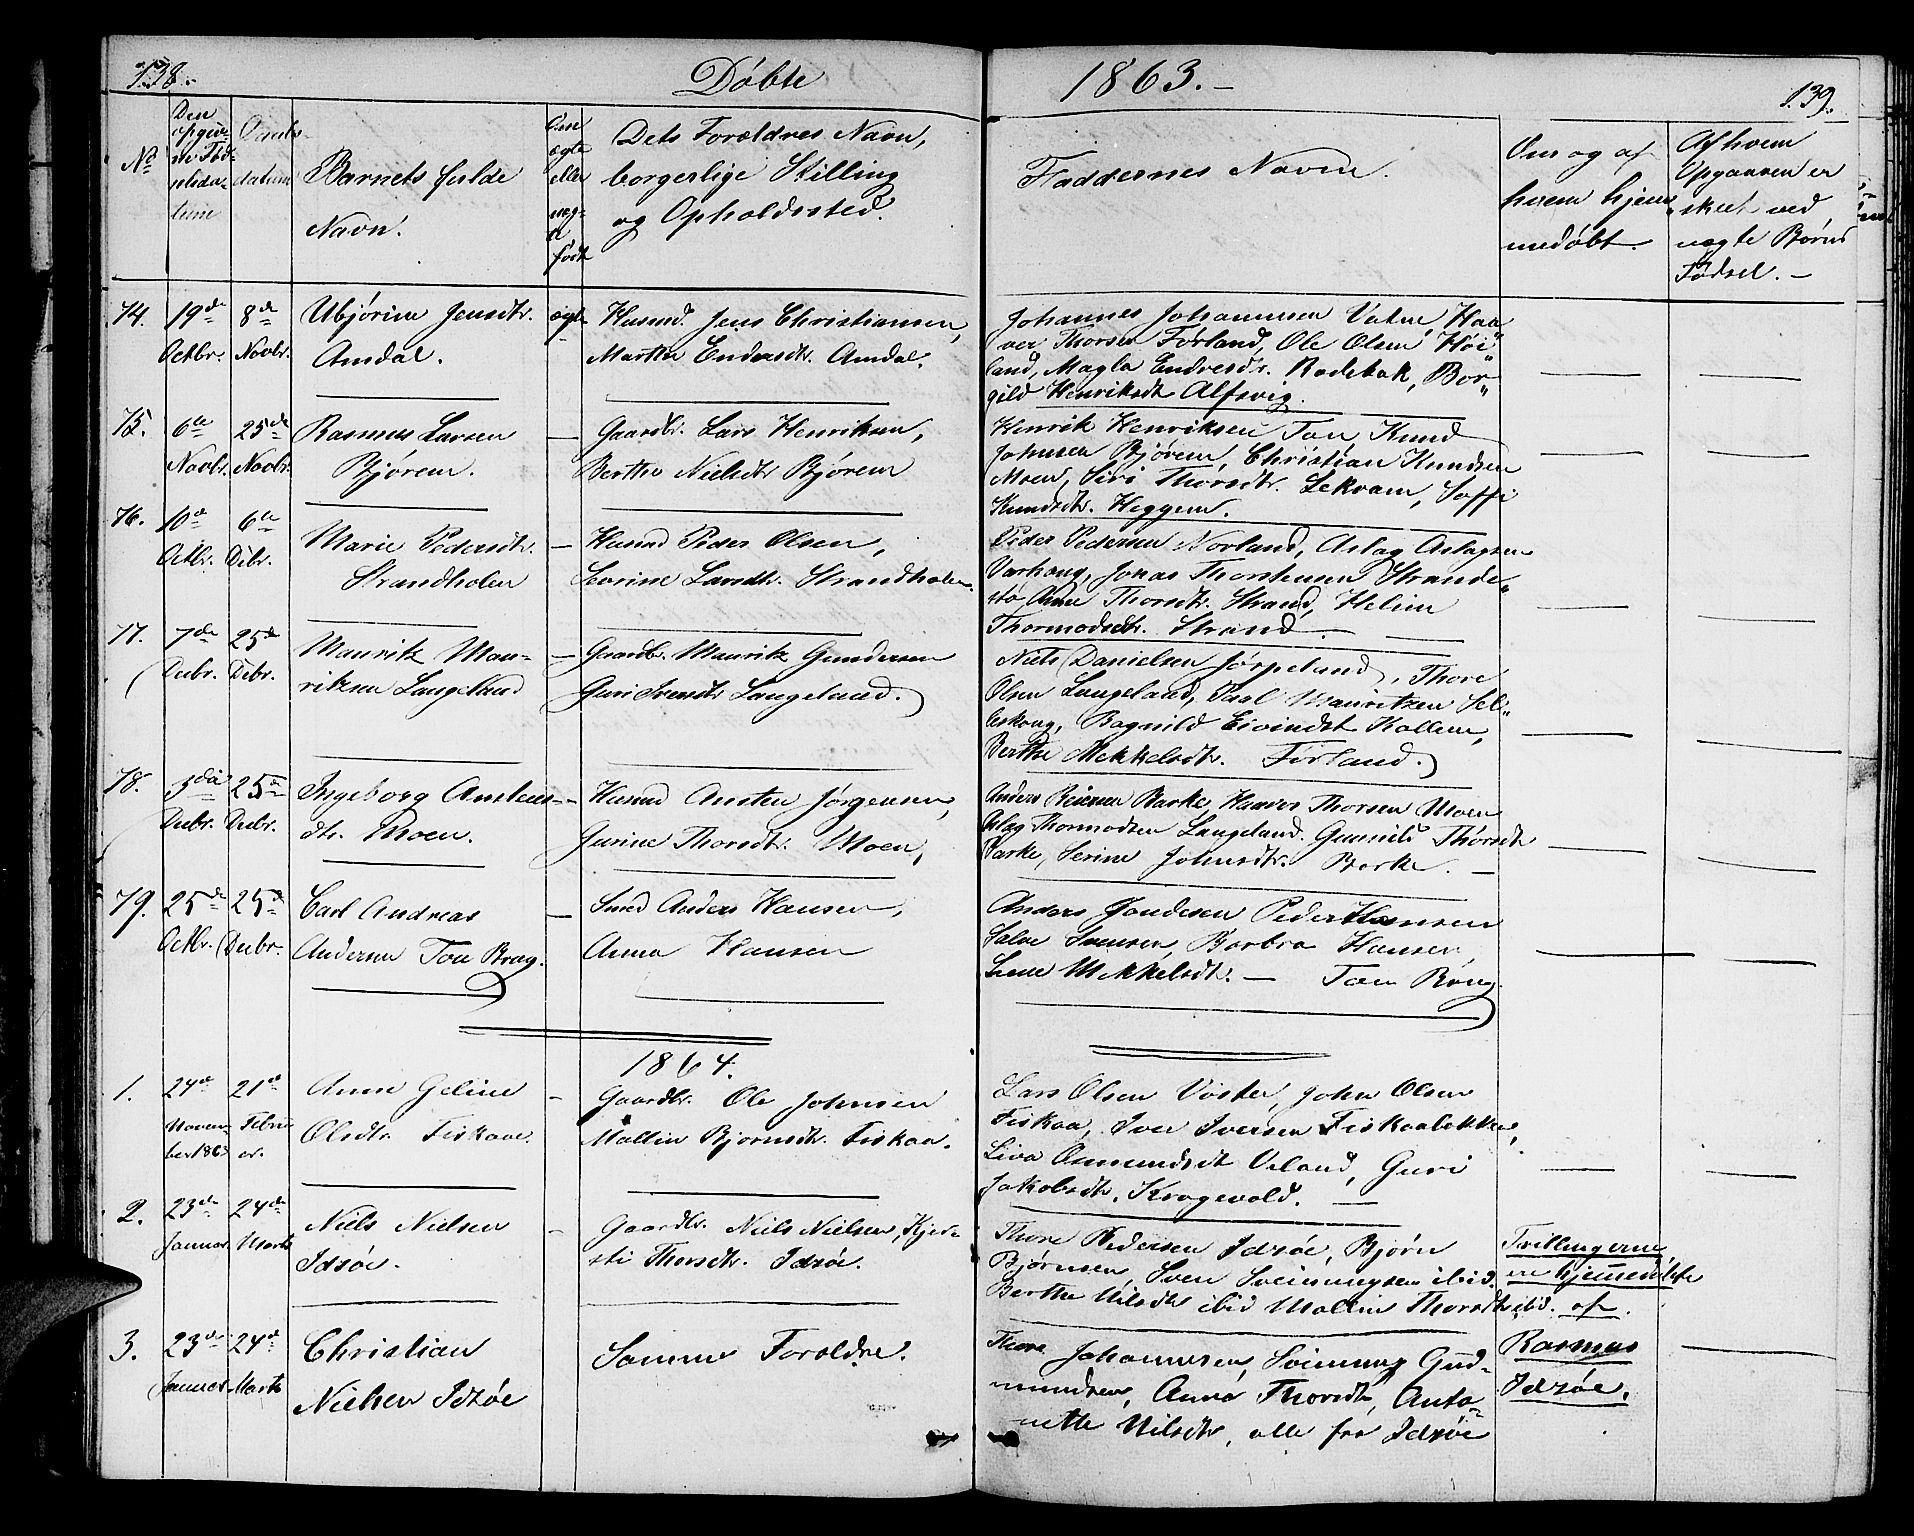 138.
Døbte
1863.
139.
No
Den opgivne Fødselsdatum
Daabsdatum
Barnets fulde Navn.
Om ægte eller uægte født
Dets Forældres Navn,
borgerlige Stilling
og Opholdssted.
Faddernes Navn.
Om og af
hvem hjem-
medøbt.
Af hvem
Opgaven er
skeet ved
uægte Børns
Fødsel.
74.
19de Octbr.
8de Novbr.
Ubjørine Jensdtr.
Amdal.
ægte
Husmd. Jens Christiansen,
Marthe Endersdtr. Amdal.
Johannes Johannesen Vatne, Haa
ver Thorsen Førland, Ole Olsen Høi
land, Magla Endresdtr. Rødebak, Bor
gild Henriksdt Alfsvig.
75.
6te Novbr.
25de Novbr.
Rasmus Larsen
Bjørem.
Gaardbr. Lars Henriksen,
Berthe Nielsdtr Bjørem
Henrik Henriksen Tou, Knud
Johnsen Bjørem, Christian Knudsen
Moen, Siri Thorsdtr. Lekvam, Soffi
Knudsdtr. Heggem.
76.
10de Octbr.
6te Dcbr.
Marie Pedersdtr.
Strandholen
Husmd Peder Olsen,
Serine Larsdtr. Strandholen.
Peder Pedersen Norland, Aslag Aslagsen
Varkoug, Jonas Thorstensen Strande
stø, Anne Thorsdtr. Strand, Helene
Thormodsdtr. Strand.
77.
7de Decbr.
25de Dcbr.
Maurik Mau-
riksen Langeland
Gaardbr. Maurik Gundersen
Guri Svensdtr Langeland.
Niels Danielsen Jørpeland, Thore
Olsen Langeland, Paal Mauritzen Sel
leskoug, Bagnild Eivindsdt Kollem,
Berthe Mekkelsdtr. Førland.
78.
3die Decbr.
25de Decbr.
Ingeborg Austens-
dtr. Moen.
Husmd Austen Jørgensen,
Gurine Thorsdtr. Moen,
Anders Reiersen Barke, Haaver Thorsen Moen
Aslag Thormodsen Langeland. Gunnild Thorsdt
Barke, Serine Johnsdtr. Barke.
79.
25de Octbr.
25de Decbr.
Carl Andreas
Andersen Tou Brug.
Smed Anders Hansen,
Anna Hansen
Anders Gundesen Peder Hansen
Salve Svensen, Barbra Hansen,
Lene Mekkelsdtr. Tou Brug
1864.
1.
24de Novem-
ber 1863
21de Februar.
Anne Geline
Olsdtr Fiskaae.
Gaardbr. Ole Johnsen
Mallin Bjørnsdtr. Fiskaa.
Lars Olsen Voster, John Olsen
Fiskaa, Iver Iversen Fiskaabekken,
Liva Osmundsdt Veland, Guri
Jakobsdtr. Kragevold.
2.
23de Januar.
24de Marts
Niels Nielsen
Idzøe.
Gaardbr. Niels Nielsen, Kjer-
sti Thorsdtr. Idzøe.
Thore Pedersen Idzøe, Bjørn
Bjørnsen, Sven Sveinungsen ibid.
Berthe Nilsdtr ibid Mallin Thorsdtr ibid.
Tvillingerne
ere hjemmedøbte
af
3.
23de Januar
24de Marts
Christian
Nielsen Idzøe
Samme Forældre.
Thore Johannesen, Svinung Gud-
mundsen, Anna Thorsdt, Anto-
nette Nilsdtr, alle fra Idzøe
Rasmus
Idzøe.